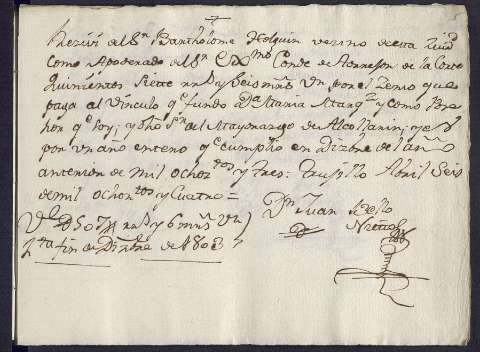 Reciví del Sr. Bartholome Holguin vezino de esta Ciud
como Apoderado del Sr. Exmo Conde de de la Corte
Quinientos siete rrs y seis mrs vn por el Zenso que
paga al Vinculo qe fundo Da Maria y como
qe soy, y dho Sr del Mayorazgo de
por un año entero qe cumplio en Dizbre de el año
anterior de mil ochoztos y tres: Truxillo Abril seis
de mil ochoztos y Cuatro =
Dn Juan
507 rrs y 6 mrs vn
fin de Dizbre de 1803